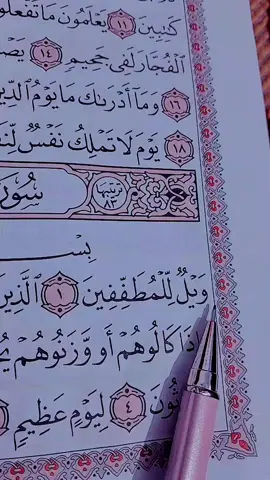 كَٰتِبِينَ ١١ يَعْلَمُونَ مَا تَفْعَلُو
ٱلْفُجَّارَ لَفِى جَحِيمٍ ١٤ يَصْ
١٦ وَمَآ أَدْرَىٰكَ مَا يَوْمُ ٱلدِّي
١٨ يَوْمَ لَا تَمْلِكُ نَفْسٌ لِّنَفْ
ترتيبها ٨٣ سُورَ
بِسْ
وَيْلٌ لِّلْمُطَفِّفِينَ ١ ٱلَّذِينَ
ذَا كَالُوهُمْ أَو وَّزَنُوهُمْ يُخْ
ثُونَ ٤ لِيَوْمٍ عَظِيمٍ